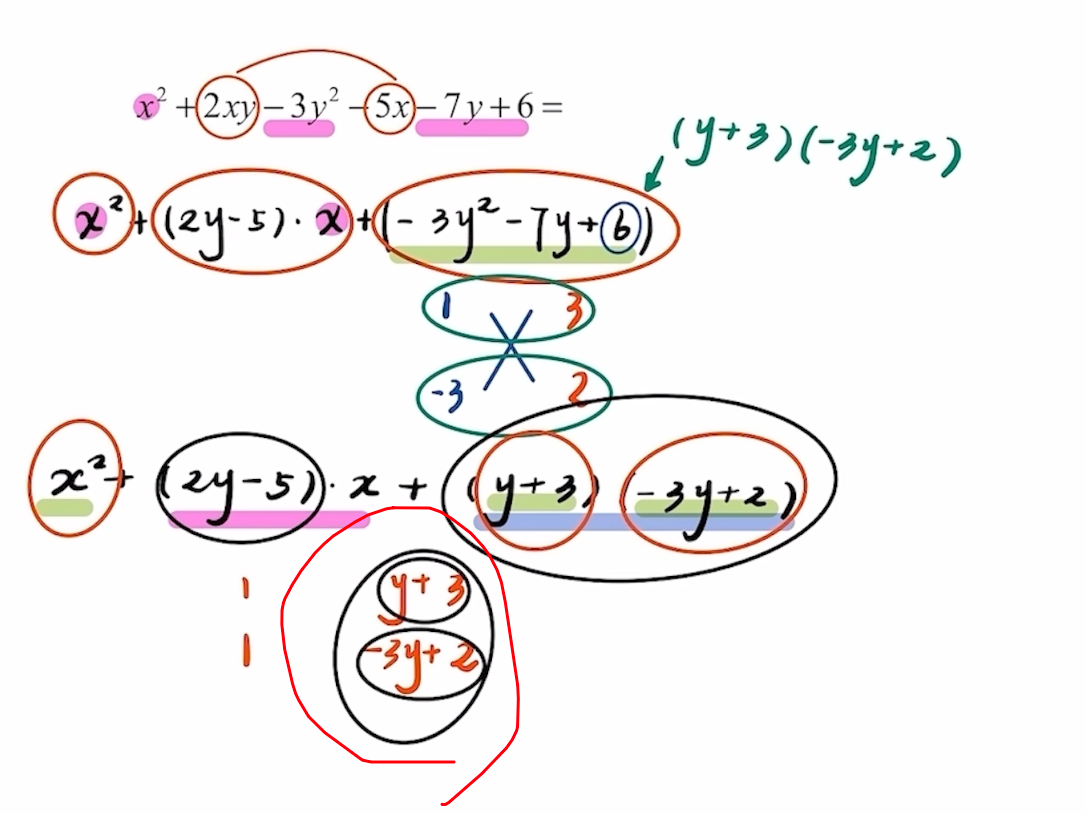 x² + 2xy − 3y² − 5x − 7y + 6 =
(y+3)(-3y+2)
x² + (2y-5)·x + (-3y²-7y+6)
1 3
-3 2
x² + (2y-5)·x + (y+3)(-3y+2)
1 y+3
1 -3y+2